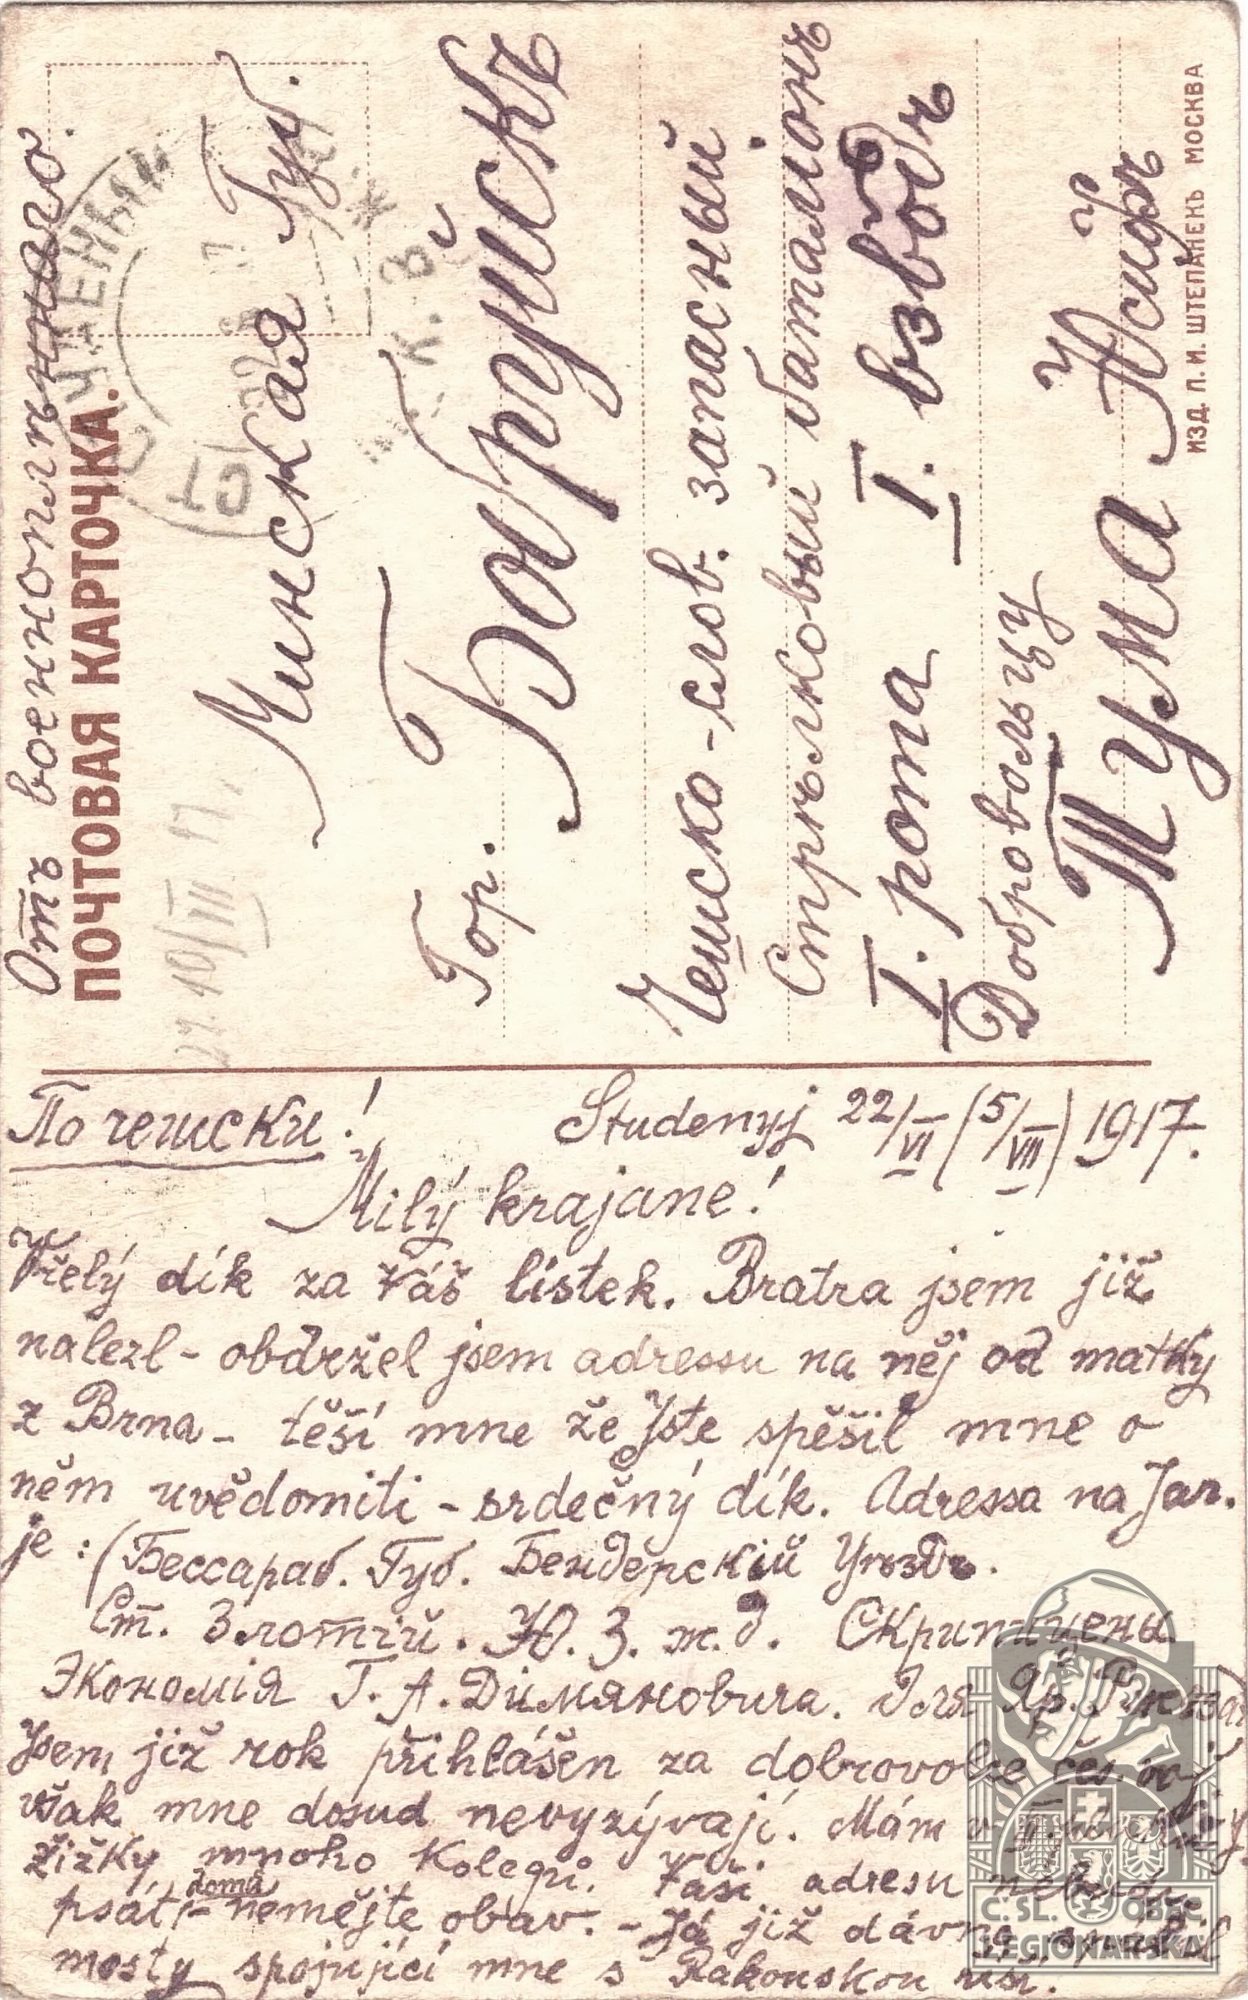 Отъ военноплѣннаго.
ПОЧТОВАЯ КАРТОЧКА.
10/III 17.
Минская Губ.
Гор. Бобруйскъ
Чешско-слов. запасный
Стрѣлковый баталіонъ
I. рота I. взводъ
Добровольцу
Тума
ИЗД. П. И. ШТЕПАНЕКЪ МОСКВА
По чешски!
Studenyj 22/VI (5/VII) 1917.
Milý krajane!
Vřelý dík za Váš lístek. Bratra jsem již
nalezl - obdržel jsem adressu na něj od matky
z Brna - těší mne že Jste spěšil mne o
něm uvědomiti - srdečný dík. Adressa na Jar.
je: (Бессараб. Губ. Бендерскій Уѣздъ.
Ст. Злотій. Ю. З. ж. д. Скриптцены
Экономія Г. А. Димяновича. для Яр.
Jsem již rok přihlášen za dobrovolce
však mne dosud nevyzývají. Mám
Žižky mnoho kolegů. Vaši adresu nebudu
psáti doma - nemějte obav. - Já již dávno spálil
mosty spojující mne s Rakouskou říší.
Č. SL. OBEC
LEGIONÁŘSKÁ